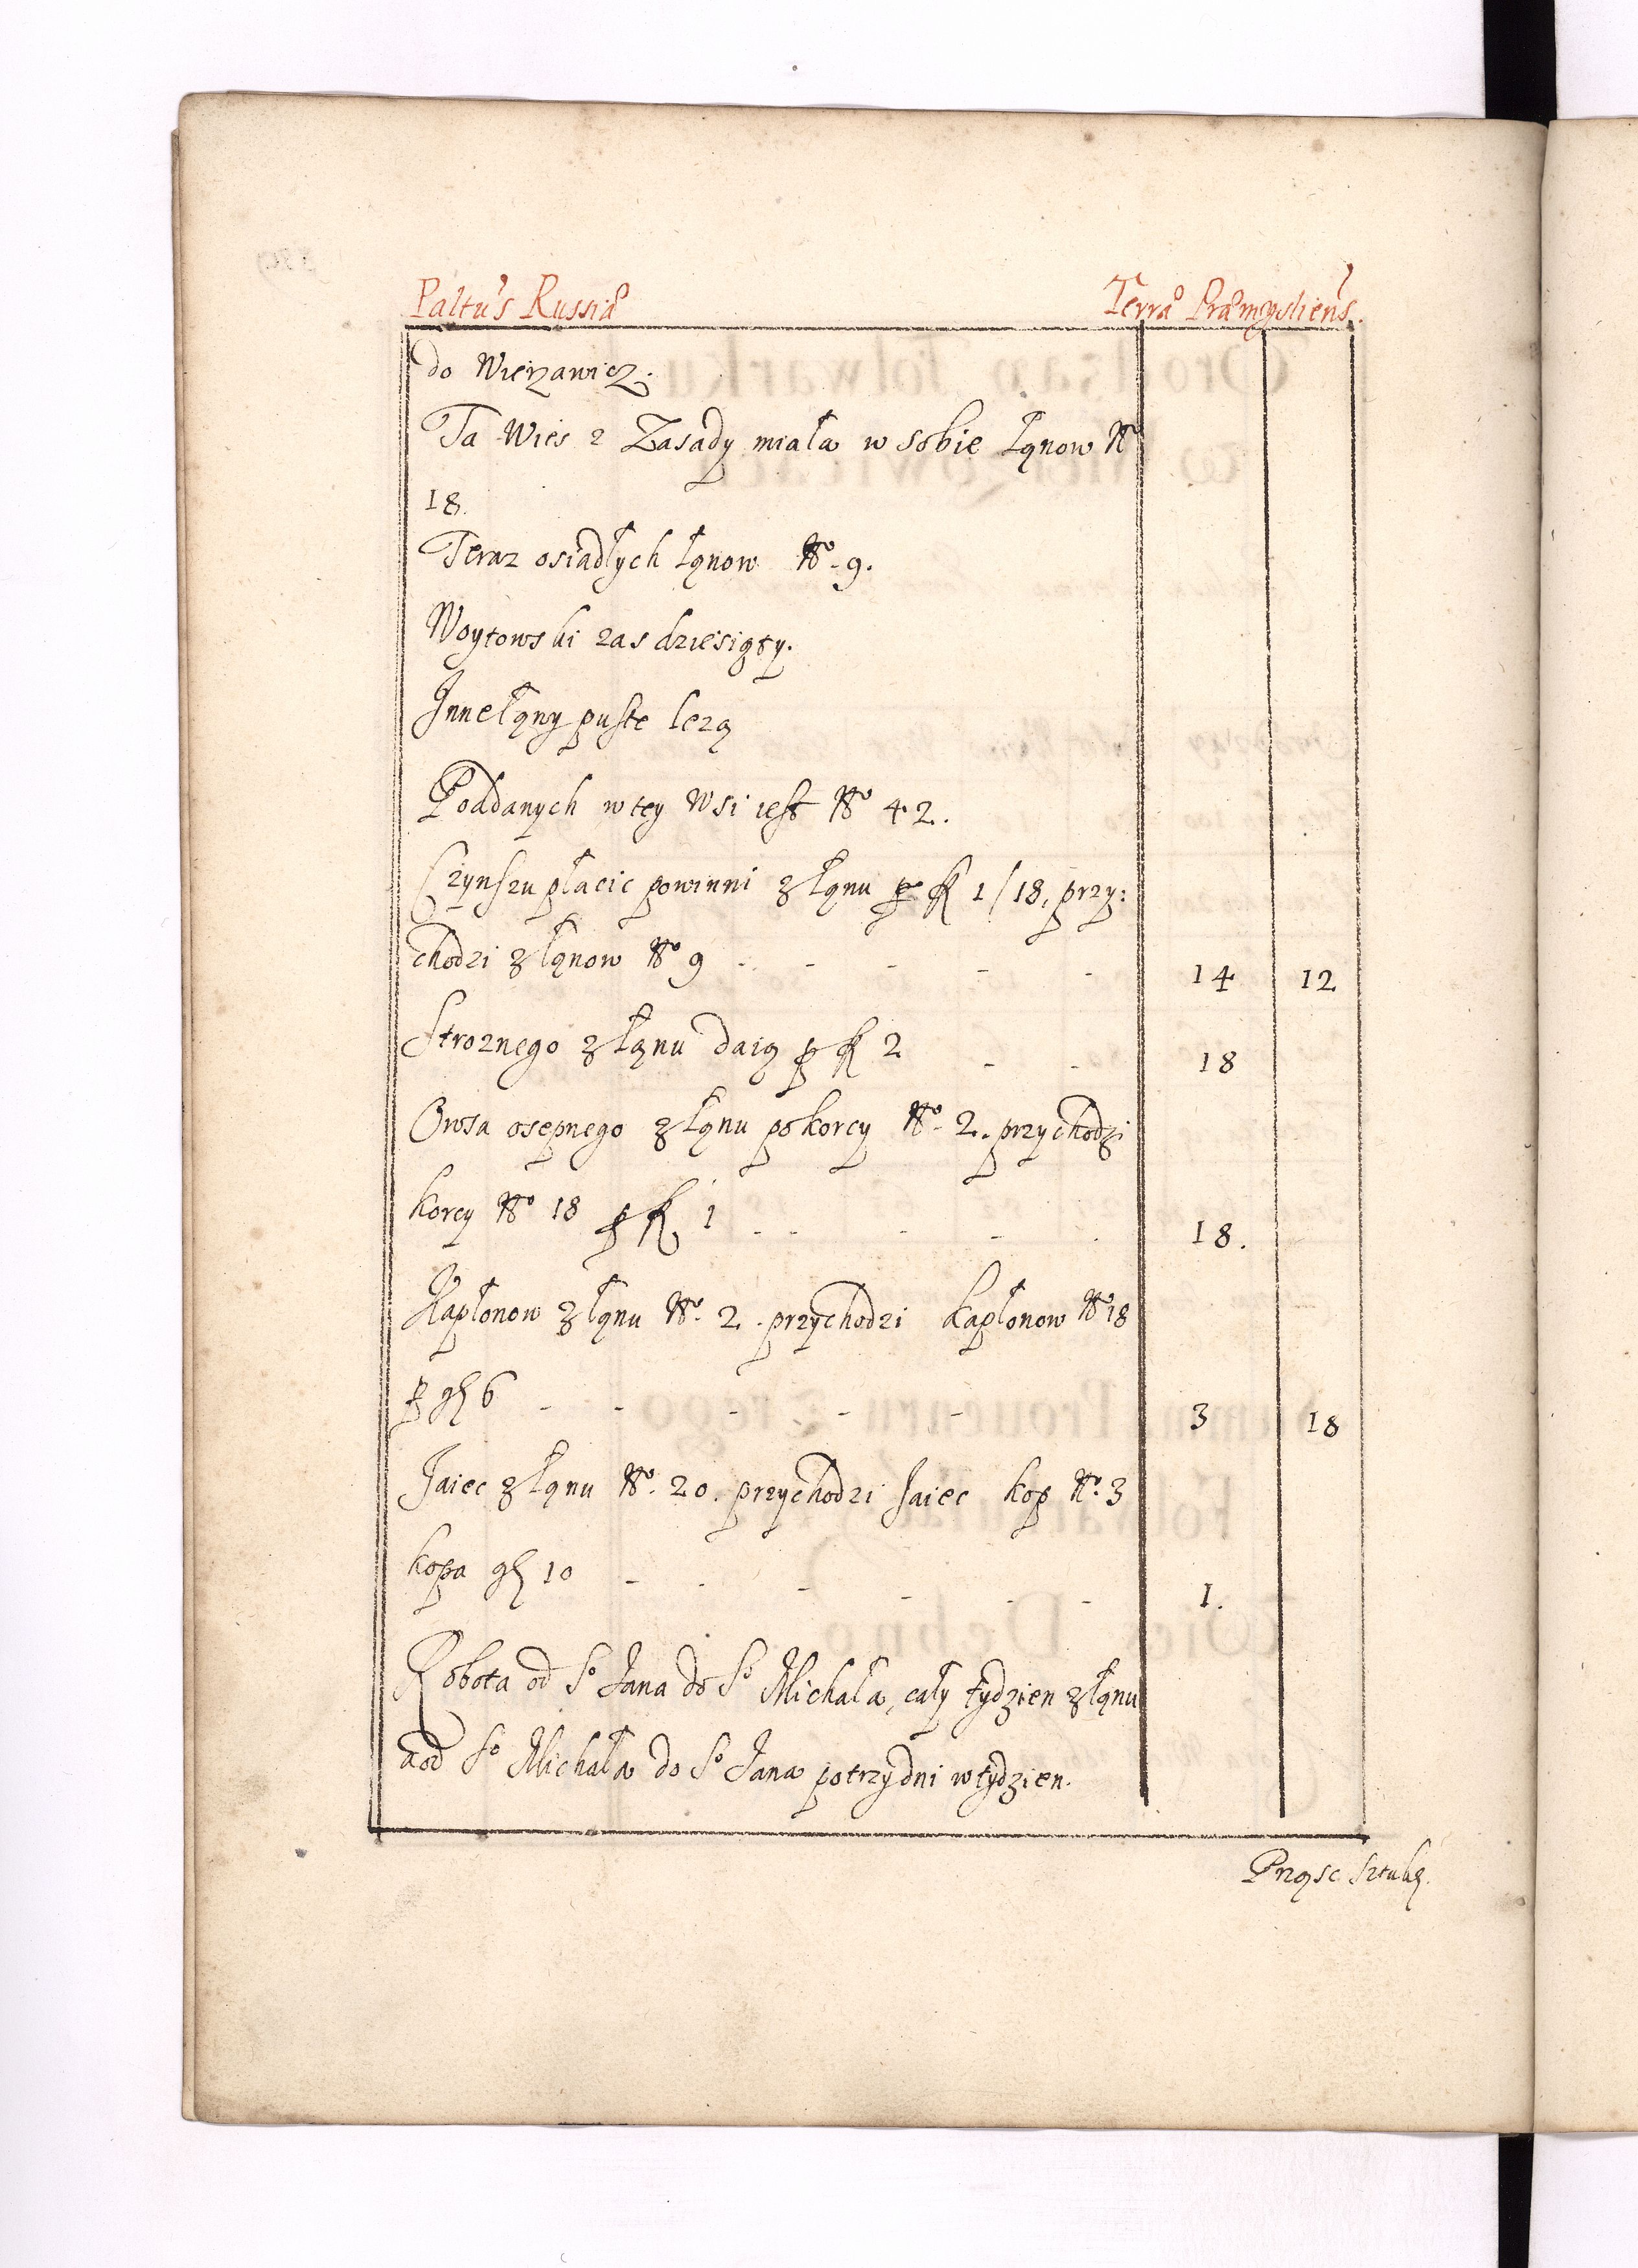 Paltus Russiæ Terræ Præmysliens.
do Wierzawicz.
Ta Wies z Zasady miała w sobie Łąnow No
18.
Teraz osiadłych łąnow No. 9.
Woytowski zas dziesiąty.
Inne łąny puste lezą
Poddanych w tey Wsi iest No 42.
Czynszu płacic powinni z łąnu p fl 1/18, przy:
chodzi z łąnow No 9 - - - - - 14 12
Stroznego z łąnu daią p fl 2 - - 18
Owsa osepnego z łąnu po korcy No. 2. przychodzi
korcy No 18 p fl 1 - - - - 18.
Kapłonow z łąnu No. 2. przychodzi kapłonow No 18
p gl 6 - - - - - 3 18
Jaiec z łąnu No. 20. przychodzi Jaiec kop No. 3
kopa gl 10 - - - - - - 1.
Robota od So Jana do So Michała, cały tydzien z łąnu
a od So Michała do So Jana po trzy dni w tydzien.
Prząsc sztukę.